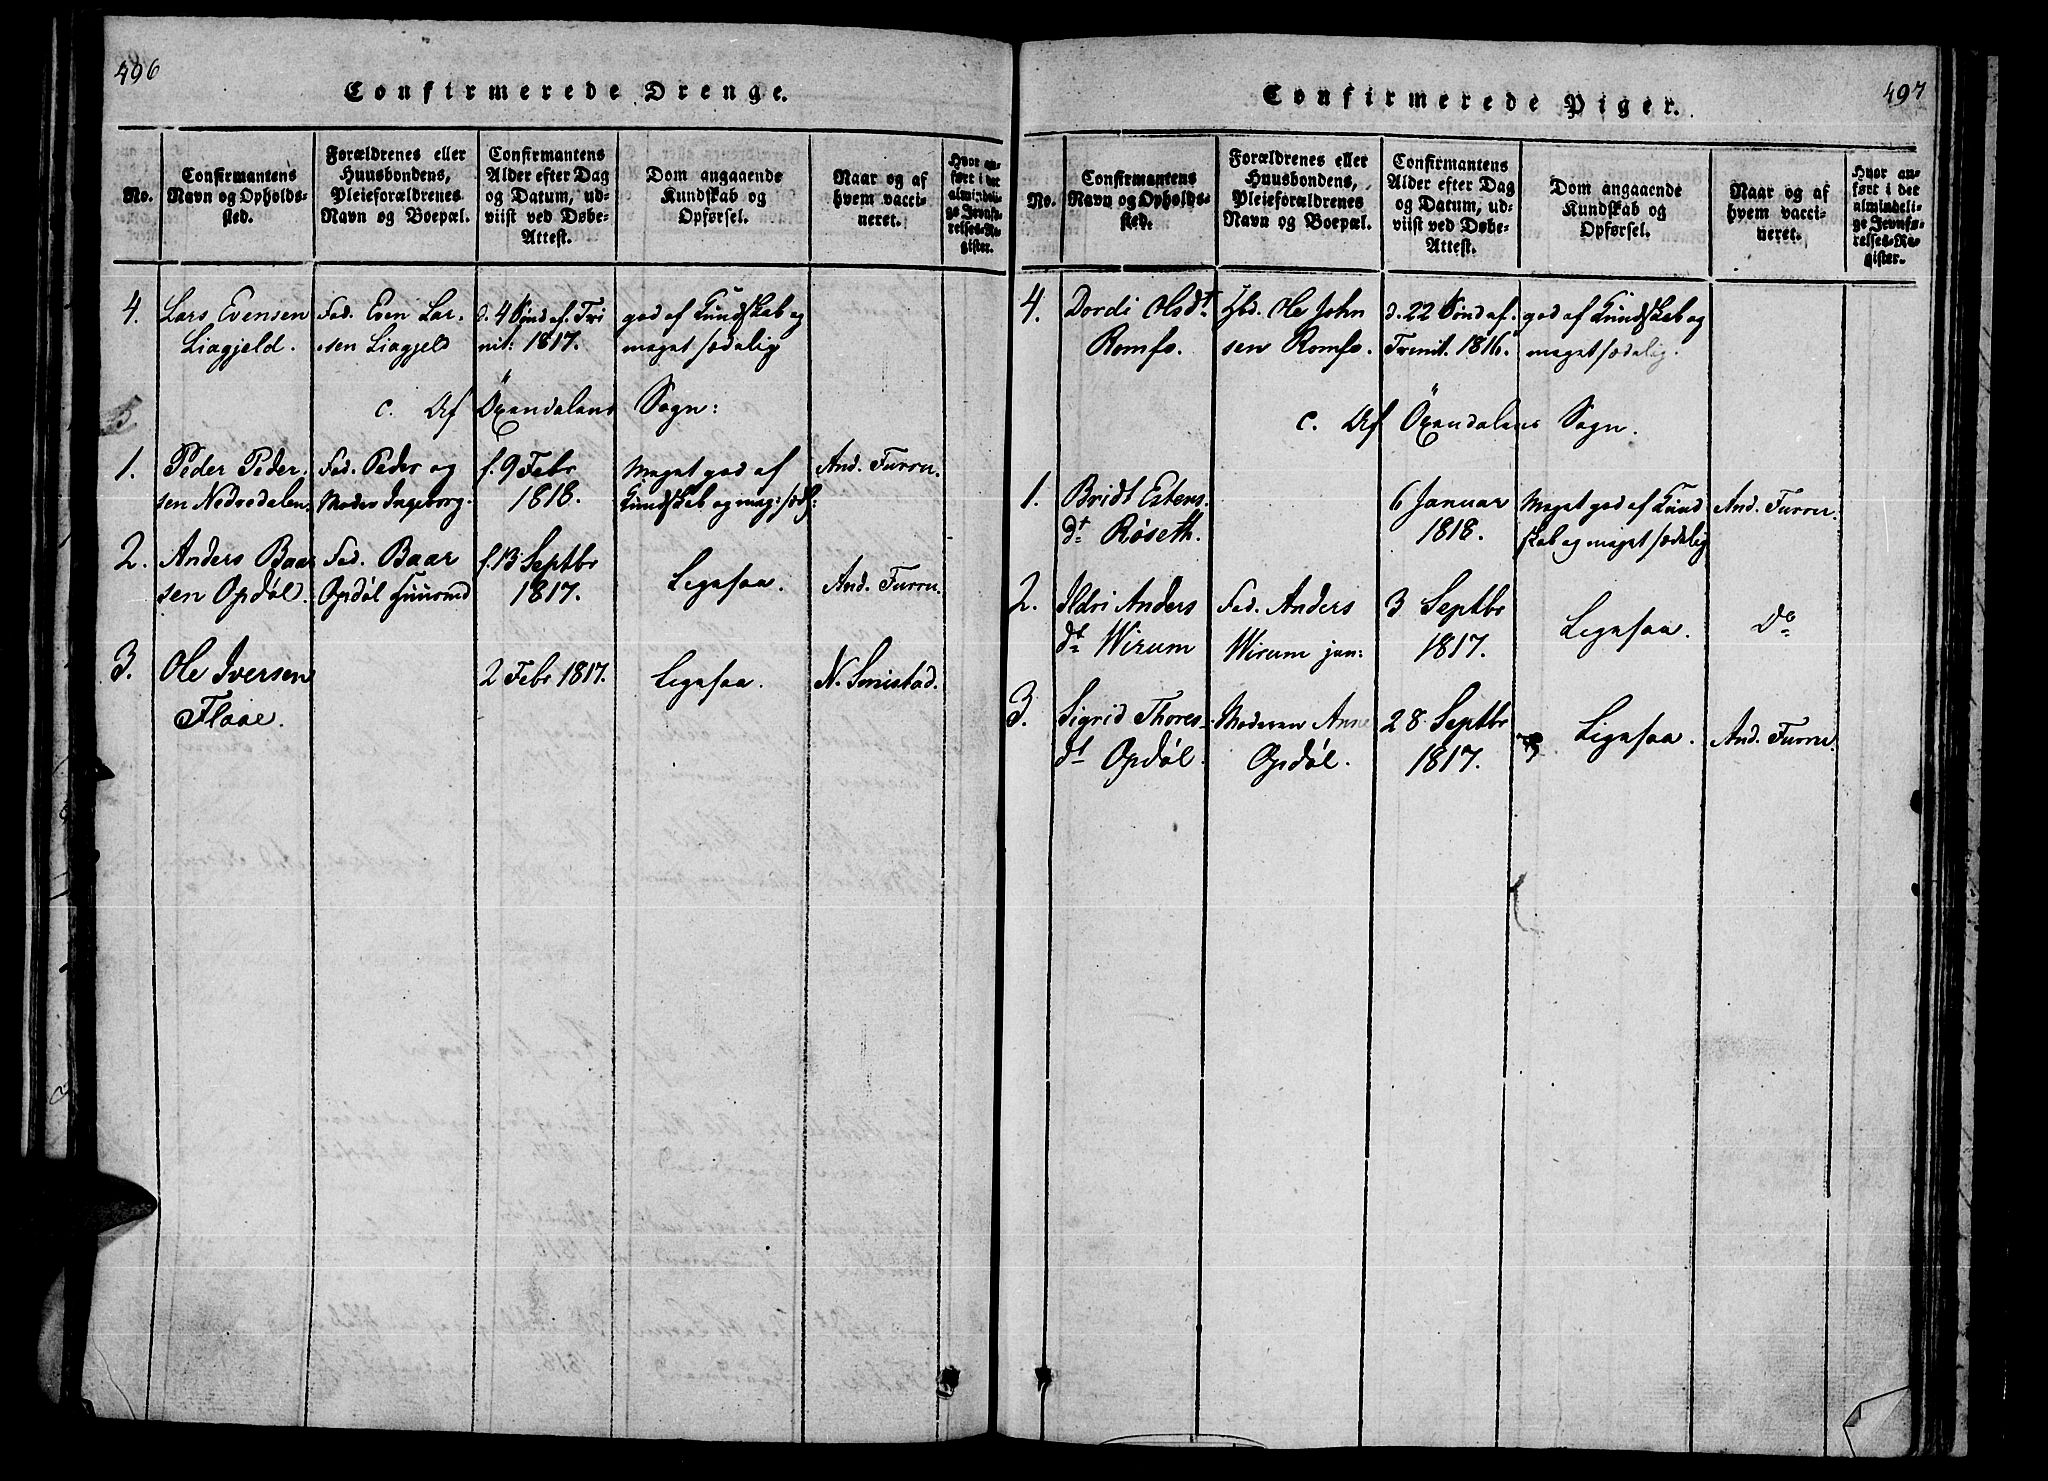 496
Confirmerede Drenge.
No.
Confirmantens
Navn og Opholds-
sted.
Forældrenes eller
Huusbondens,
Pleieforældrenes
Navn og Boepæl.
Confirmantens
Alder efter Dag
og Datum, ud-
viist ved Døbe-
Attest.
Dom angaaende
Kundskab og
Opførsel.
Naar og af
hvem vacci-
neret.
Hvor an-
ført i det
almindeli-
ge Jevnfø-
relses-Re-
gister.
4.
Lars Evensen
Liagjeld.
Fad. Even Lar-
sen Liagjeld
d. 4 Sønd. af. Tri
nit: 1817.
god af Kundskab og
meget sædelig
c. Af Öxendalens Sogn:
1.
Peder Peder-
sen Nedredalen
Fad. Peder og
Moder Ingeborg.
f. 9 Febr
1818.
Meget god af
Kundskab og meg: sædl:
And. Furru.
2.
Anders Baar
sen Opdøl.
Fad. Baar
Opdøl Huusmd
f. 13 Septbr
1817.
Ligesaa.
And. Furru.
3.
Ole Iversen
Flaae.
2 Febr 1817.
Ligesaa.
N.
497
Confirmerede Piger.
No.
Confirmantens
Navn og Opholds-
sted.
Forældrenes eller
Huusbondens,
Pleieforældrenes
Navn og Boepæl.
Confirmantens
Alder efter Dag
og Datum, ud-
viist ved Døbe-
Attest.
Dom angaaende
Kundskab og
Opførsel.
Naar og af
hvem vacci-
neret.
Hvor an-
ført i det
almindeli-
ge Jevnfø-
relses-Re-
gister.
4.
Dordi Olsdt
Romfo.
Hbd. Ole John
sen Romfo.
d. 22 Sønd af.
Trinit. 1816.
god af Kundskab og
meget sædelig.
c. Af Öxendalens Sogn.
1.
Bridt Estens
dt Røseth.
6 Januar
1818.
Meget god af Kund
skab og meget sædelig
And. Furru.
2.
Ildri Anders
dt Wirum
Fad. Anders
Wirum jun:
3 Septbr
1817.
Ligesaa.
Do
3.
Sigrid Thores
dt Opdøl.
Moderen Anne
Opdøl.
28 Septbr
1817.
Ligesaa.
And. Furru.